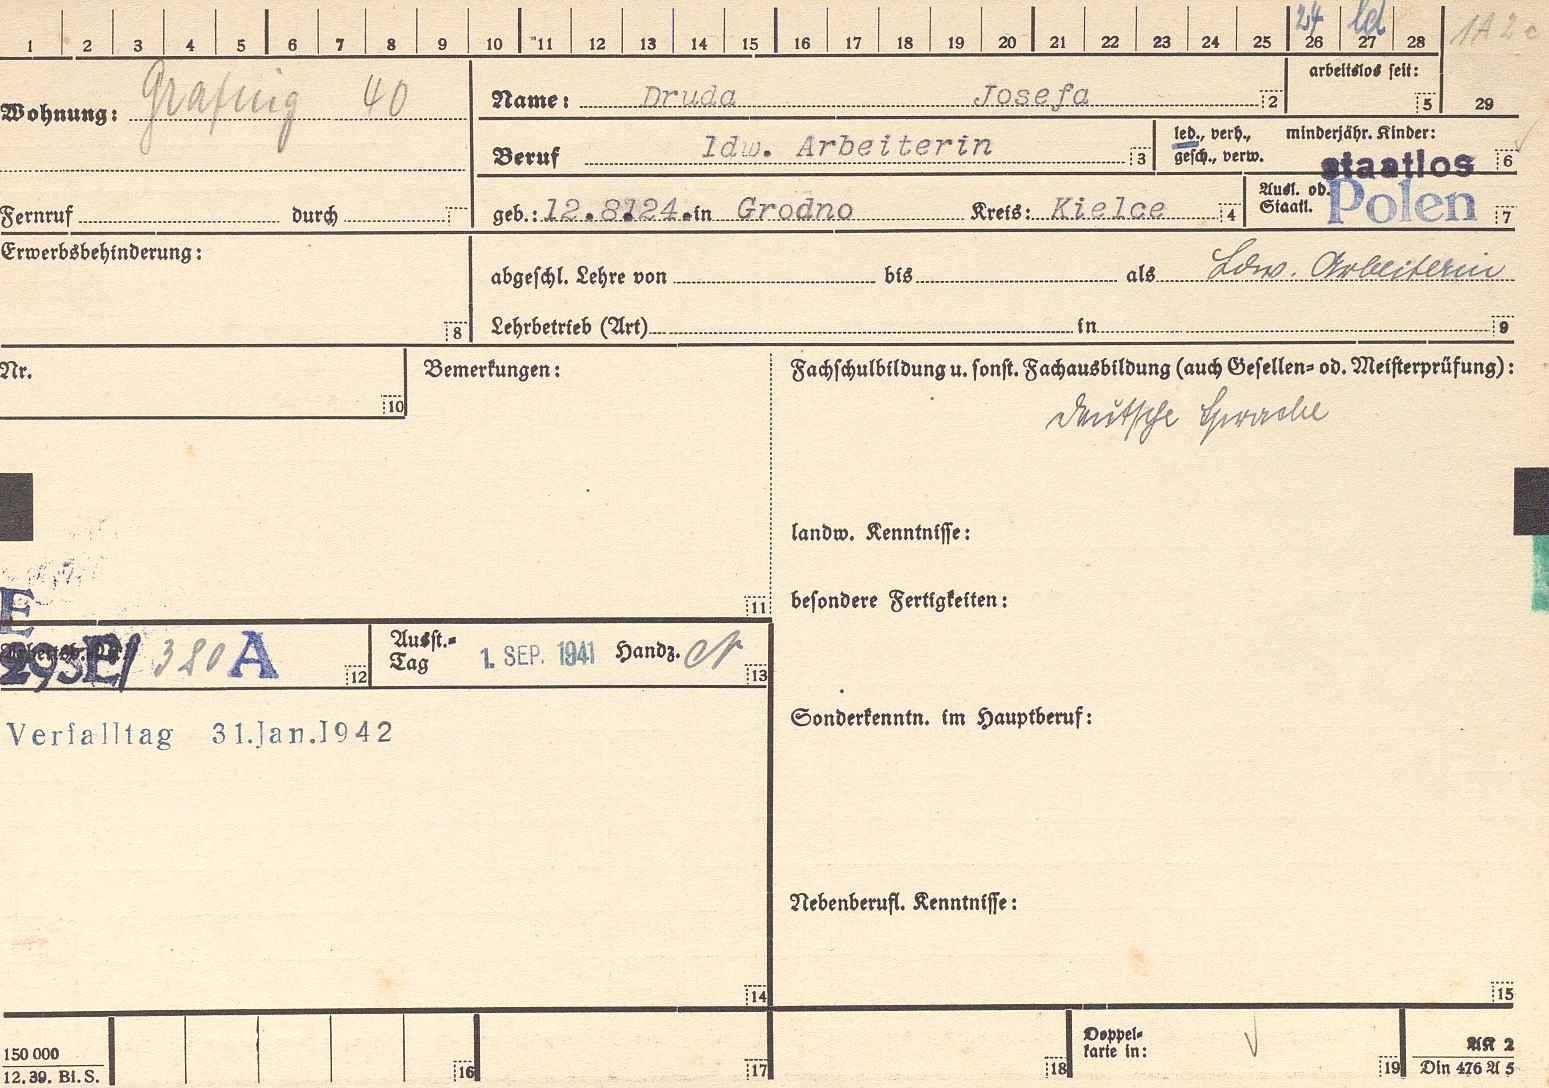 1 2 3 4 5 6 7 8 9 10 11 12 13 14 15 16 17 18 19 20 21 22 23 24 25 26 27 28
24 ld 1A2c
arbeitslos seit:
5 29
Wohnung: Grafing 40
Name: Druda Josefa 2
Beruf ldw. Arbeiterin 3
led., verh., gesch., verw.
minderjähr. Kinder:
6
staatlos
Fernruf durch
geb.: 12.8.24. in Grodno Kreis: Kielce 4
Ausl. od. Staatl. Polen 7
Erwerbsbehinderung:
8
abgeschl. Lehre von bis als Ldw. Arbeiterin
Lehrbetrieb (Art) in 9
Nr.
10
Bemerkungen:
11
Fachschulbildung u. sonst. Fachausbildung (auch Gesellen- od. Meisterprüfung):
deutsche Sprache
landw. Kenntnisse:
besondere Fertigkeiten:
E
293E/ 380 A 12
Ausst.-Tag 1. SEP. 1941 Handz. 13
Verfalltag 31.Jan.1942
Sonderkenntn. im Hauptberuf:
Nebenberufl. Kenntnisse:
14
15
150 000
12. 39. Bl. S.
16 17 18
Doppel-
karte in:
19
AK 2
Din 476 A 5